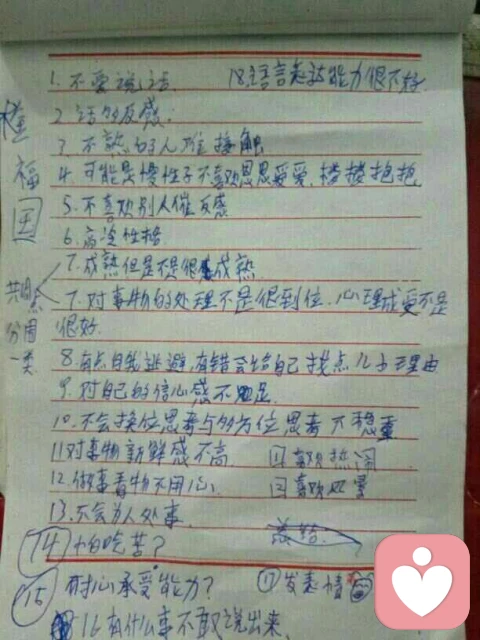 1. 不爱说话. 18.语言表达能力很不好.
2 话多反感.
3. 不熟的人难接触
4. 可能是慢性子不喜欢恩恩爱爱. 搂搂抱抱
5. 不喜欢别人催反感
6. 高冷性格
7. 成熟但是不是很成熟
7. 对事物的处理不是很到位. 心理成受不是
很好.
8. 有点自我逃避, 有错会给自己找点儿子理由
9. 对自己的信心感不足
10. 不会换位思考与多方位思考 不稳重
11 对事物新鲜感不高.
喜欢热闹
12. 做事看物不用心.
喜欢
13. 不会为人处事.
14 怕吃苦?
15 耐心承受能力?
17 发表情
16 有什么事不敢说出来
福
国
共同点
分同
一类